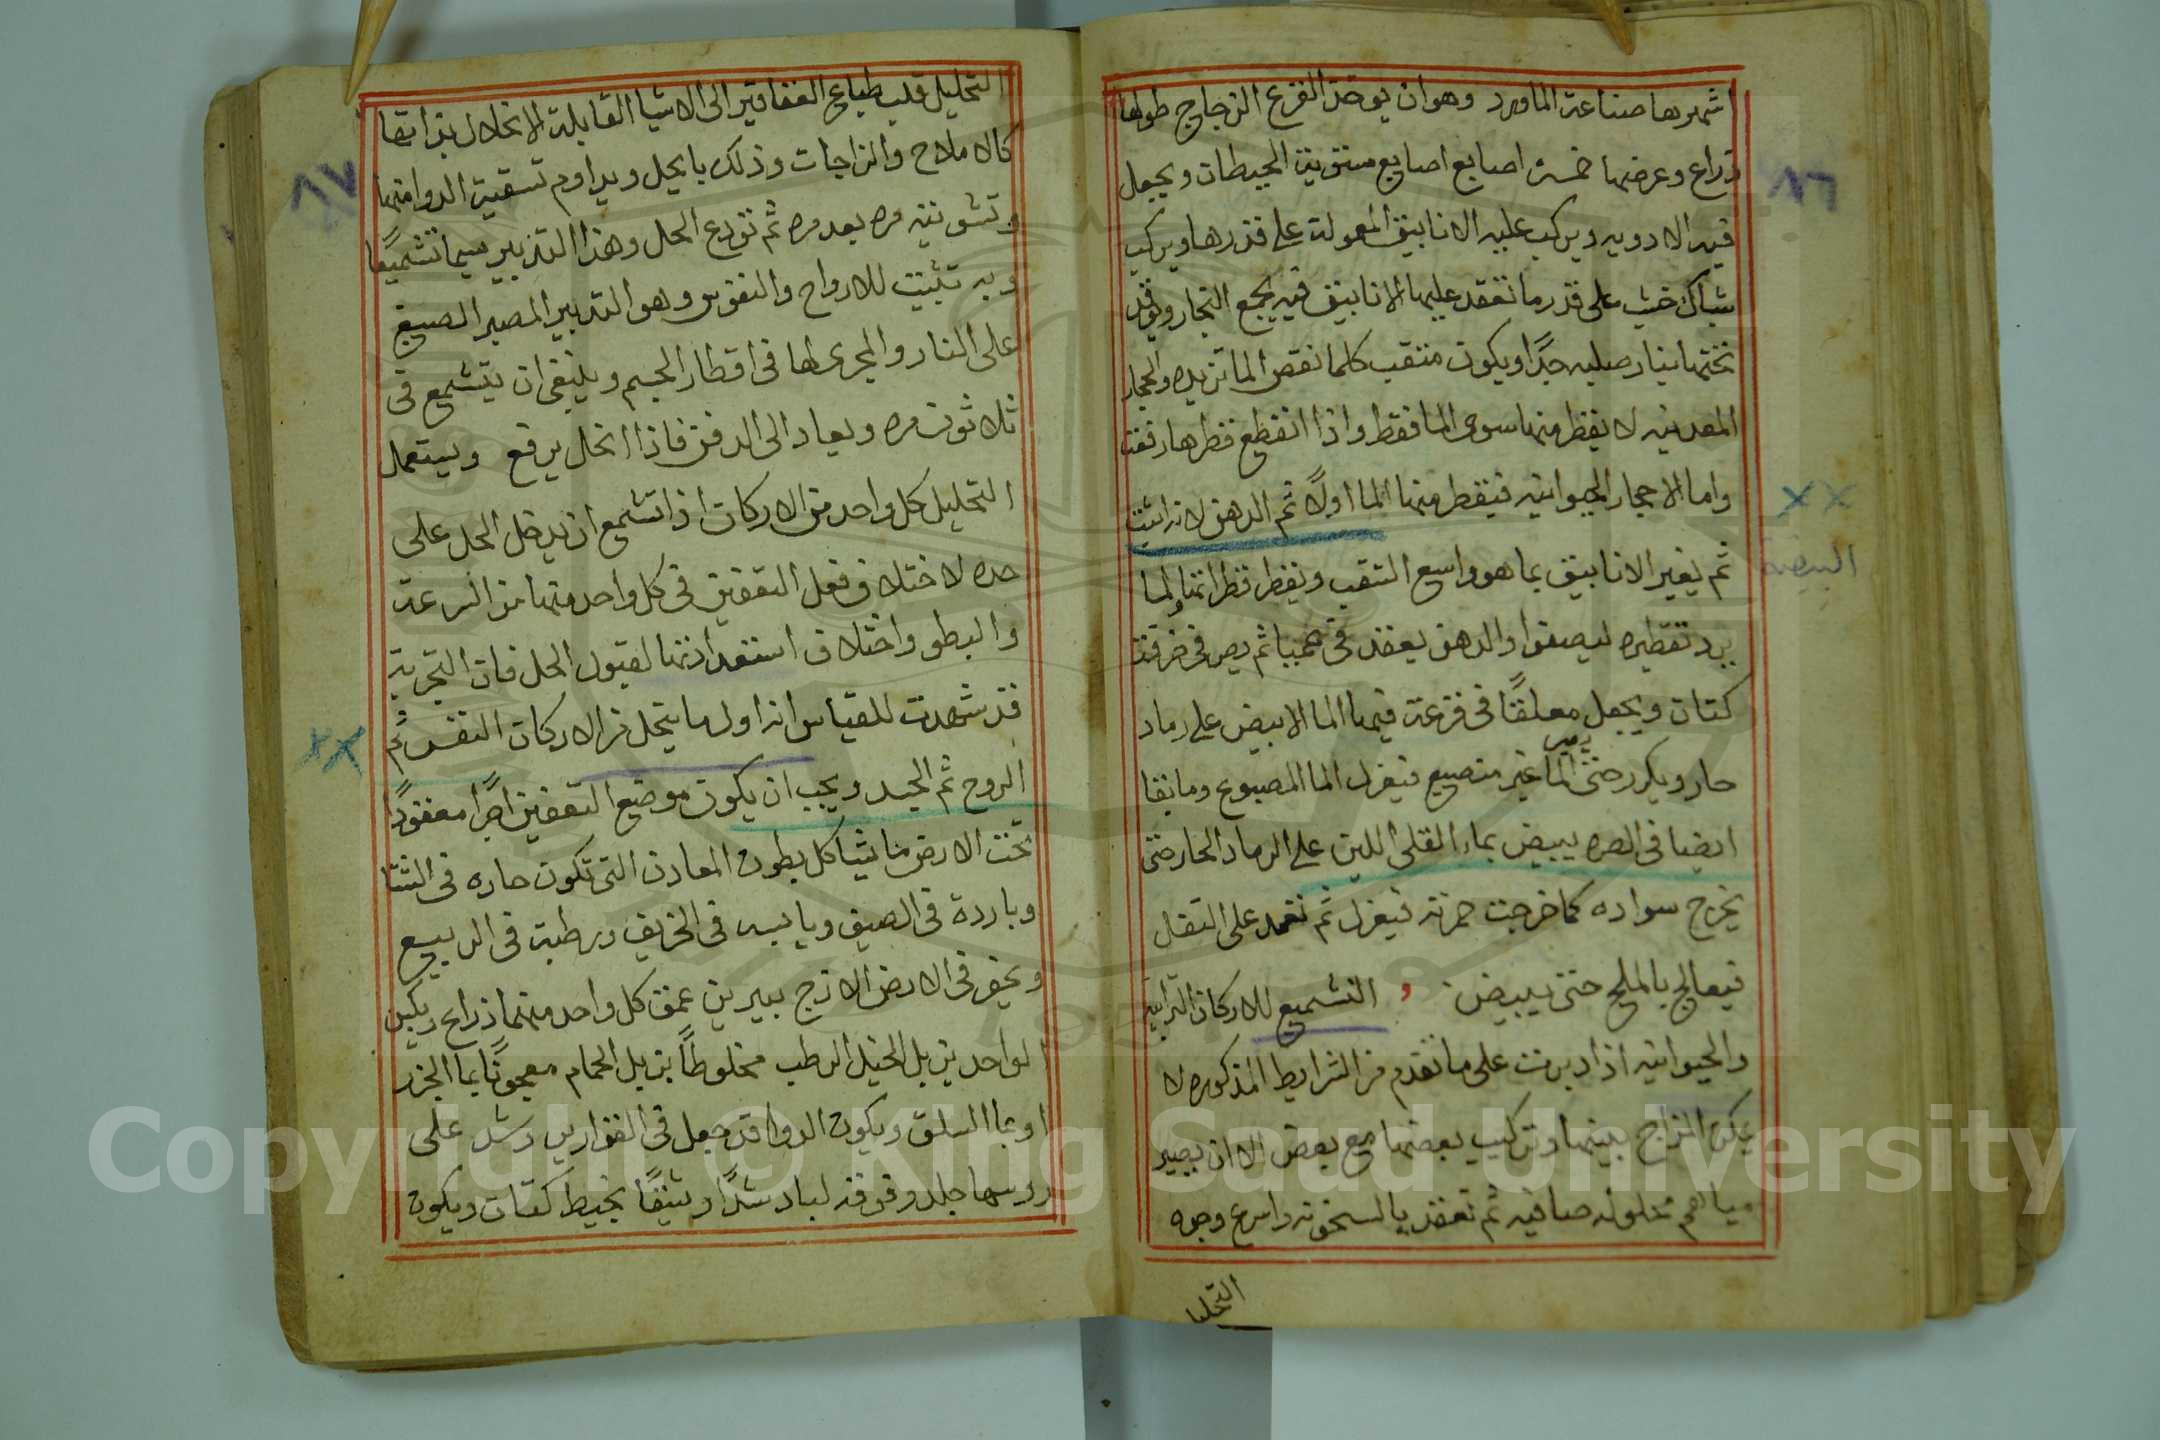 ٨٦
اشهرها صناعة الماورد وهو ان يوخذ القرع الزجاج طولها
ذراع وعرضها خمسة اصابع اصابع مستوية الحيطان ويجعل
فيه الادويه ويركب عليه الانابيق المعمولة على قدرها ويركب
شباك خشب على قدر ما تقعد عليها الانابيق فيه يجمع البخار ويوقد
تحتها بنار صلبه جدًا ويكون منقب كلما نقص الما تزيده والحجار
المعدنيه لا يقطر منها سوى الما فقط واذا انقطع قطرها رفعت
واما الاحجار الحيوانيه فيقطر منها الما اولًا ثم الدهن لانه اثبت
ثم يغير الانابيق بما هو واسع الثقب ويقطر قطرا تماما والما
يرد تقطيره ليصفوا والدهن يعقد في ثم يصر في خرقة
كتان ويجعل معلقًا في قرعة فيها الما الابيض على رماد
حار ويكرر حتى يصير الما غير منصبغ فيعزل الما المصبوغ وما بقا
ايضا في الصره يبيض بماء القلى اللين على الرماد الحار حتى
يخرج سواده كما خرجت حمرته فيعزل ثم تعمد على الثقل
فيعالج بالملح حتى يبيض التشميع للاركان الترابيه
والحيوانيه اذا دبرت على ما تقدم من الشرايط المذكوره لا
يمكن المزاج بينها وتركيب بعضها مع بعض الا ان يصير
مياهم محلوله صافيه ثم تعقد بالسخونه واسرع وجوه
التحليل
البيضة
٨٧
التحليل قلب طبايع العقاقير الى الاشيا القابلة الانحلال بذاتها
كالاملاح والزاجات وذلك بالحل ويداوم تسقية الدوا منها
وتشويته مره بعد مره ثم تودع الحل وهذا التدبير يسما تشميعًا
وبه تثبت للارواح والنفوس وهو التدبير المصبر الصبغ
على النار والمجرى لها في اقطار الجسم وينبغي ان يتشمع في
ثلاثون مره ويعاد الى الدفن فاذا انحل يرفع ويستعمل
التحليل كل واحد من الاركان اذا تشمع ان يدخل الحل على
حده لاختلاف فعل التعفين في كل واحد منها من السرعة
والبطو واختلاف استعدادتها لقبول الحل فان التجربة
قد شهدت للقياس انه اول ما ينحل من الاركان النفس ثم
الروح ثم الجسد ويجب ان يكون موضع التعفين معقودًا
تحت الارض ما يشاكل بطون المعادن التي تكون حاره في الشتا
وباردة في الصيف ويابسه في الخريف ورطبة في الربيع
ويحفر في الارض الازج بيرين عمق كل واحد منهما ذراع
الواحد بزبل الخيل الرطب مخلوطًا بزبل الحمام معجونًا بما الجزر
او بما السلق ويكون الدوا قد جعل في القوارير وشد على
روسها جلد وفوقه لباد شدًا وثيقًا بخيط كتان ويكون
Copyright © King Saud University